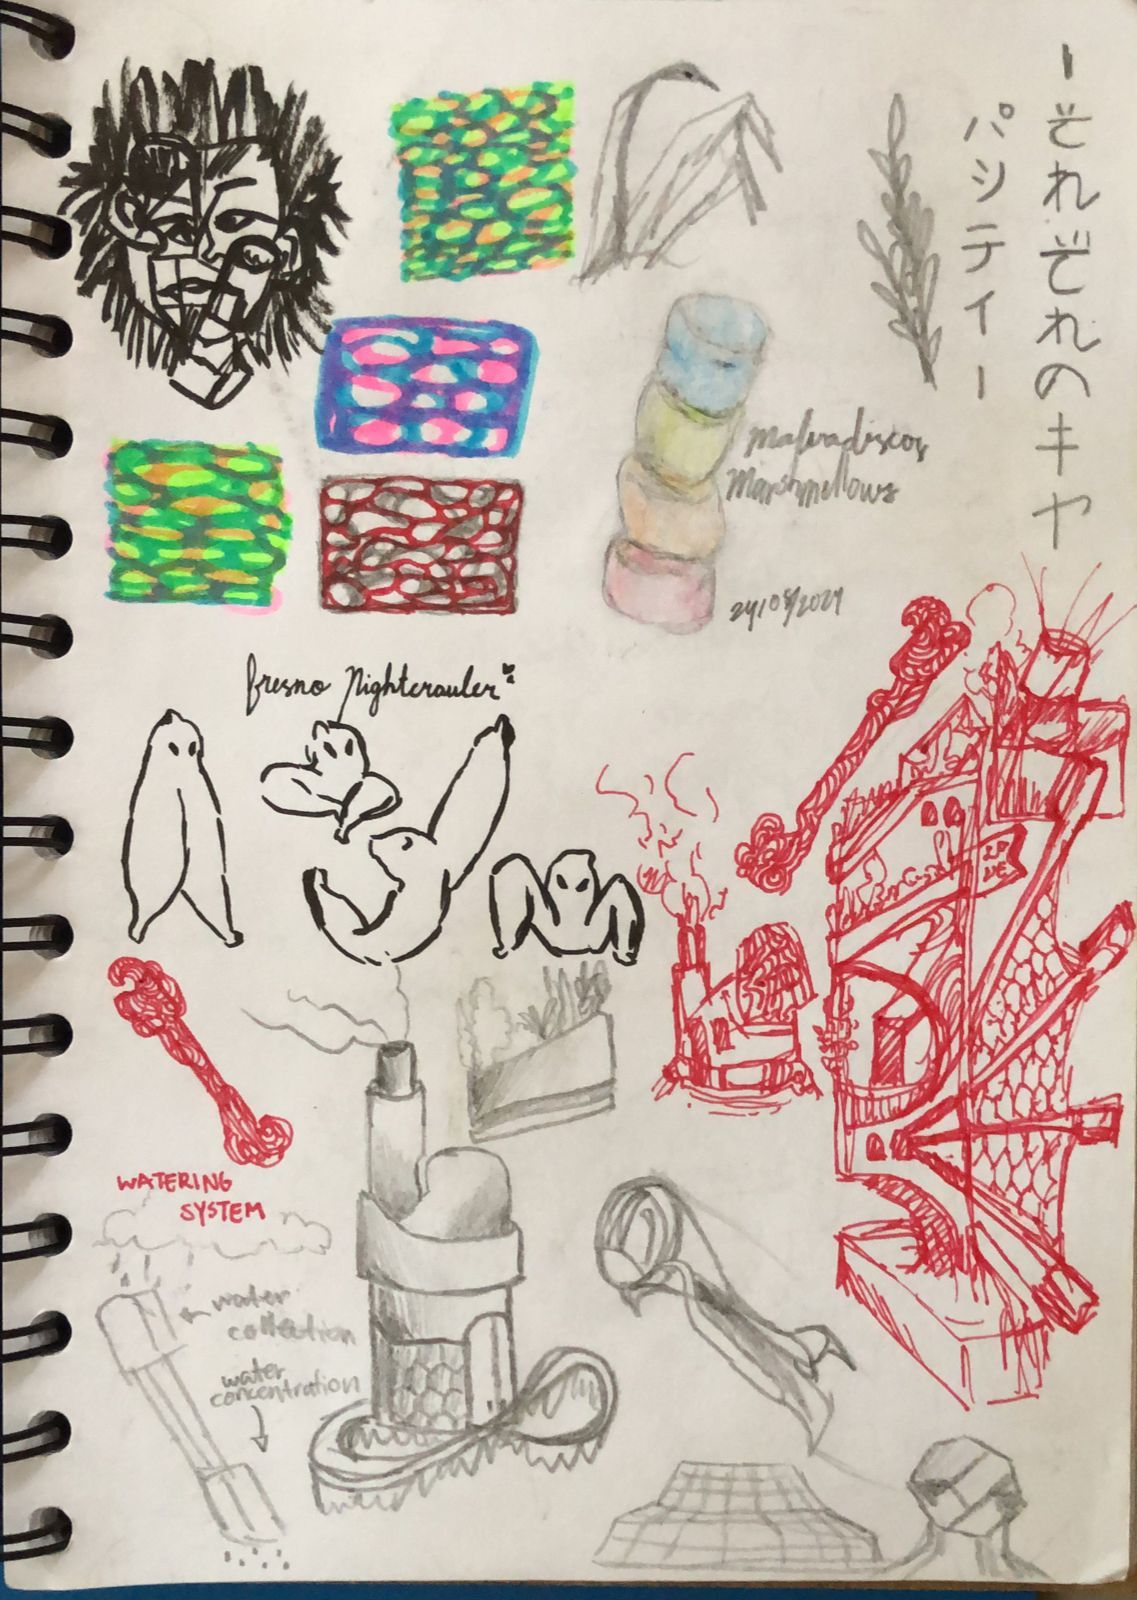 ーそれぞれのキャ
パシティー
Marshmellows
fresno Nightcrawler
WATERING
SYSTEM
water
collection
water
concentration